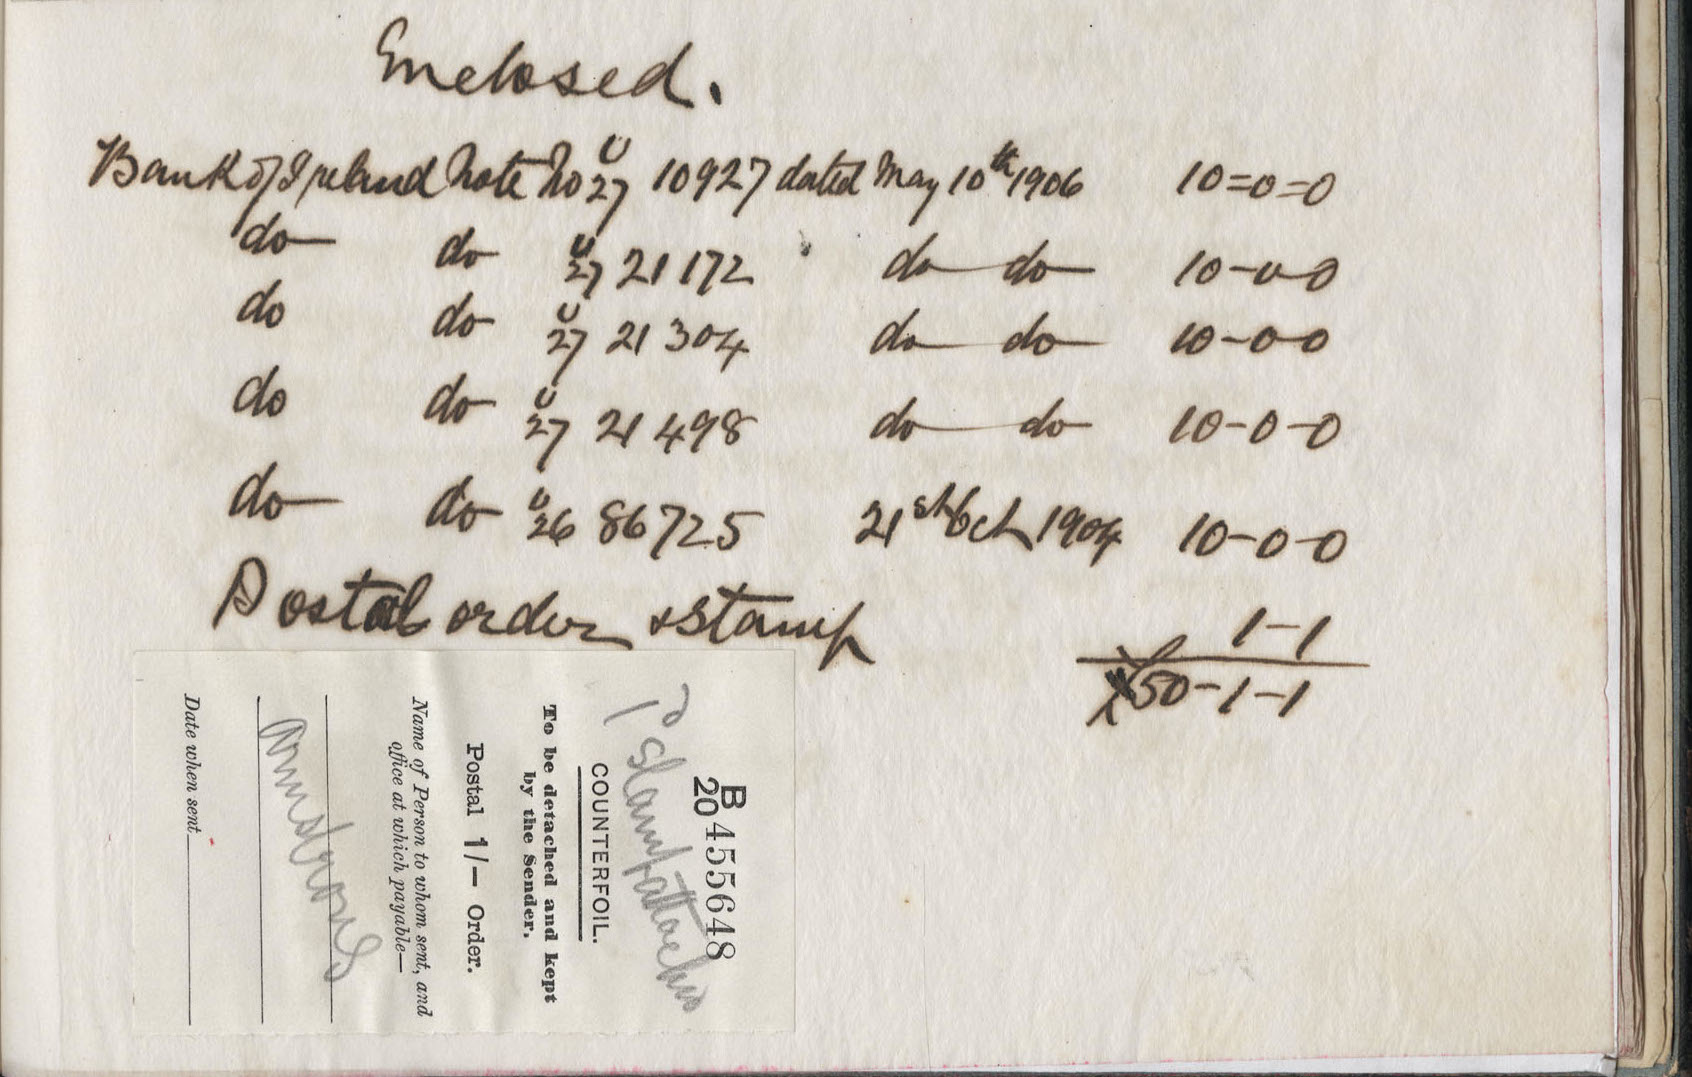 Enclosed.
Bank of Ireland Note No U/27 10927 dated May 10th 1906 10=0=0
do do U/27 21172 do do 10-0-0
do do U/27 21304 do do 10-0-0
do do U/27 21498 do do 10-0-0
do do U/26 86725 21st Oct 1904 10-0-0
Postal order & Stamp 1-1
£50-1-1
B/20 455648
1d stamp attached
COUNTERFOIL.
To be detached and kept
by the Sender.
Postal 1/- Order.
Name of Person to whom sent, and
office at which payable—
Armstrong
Date when sent